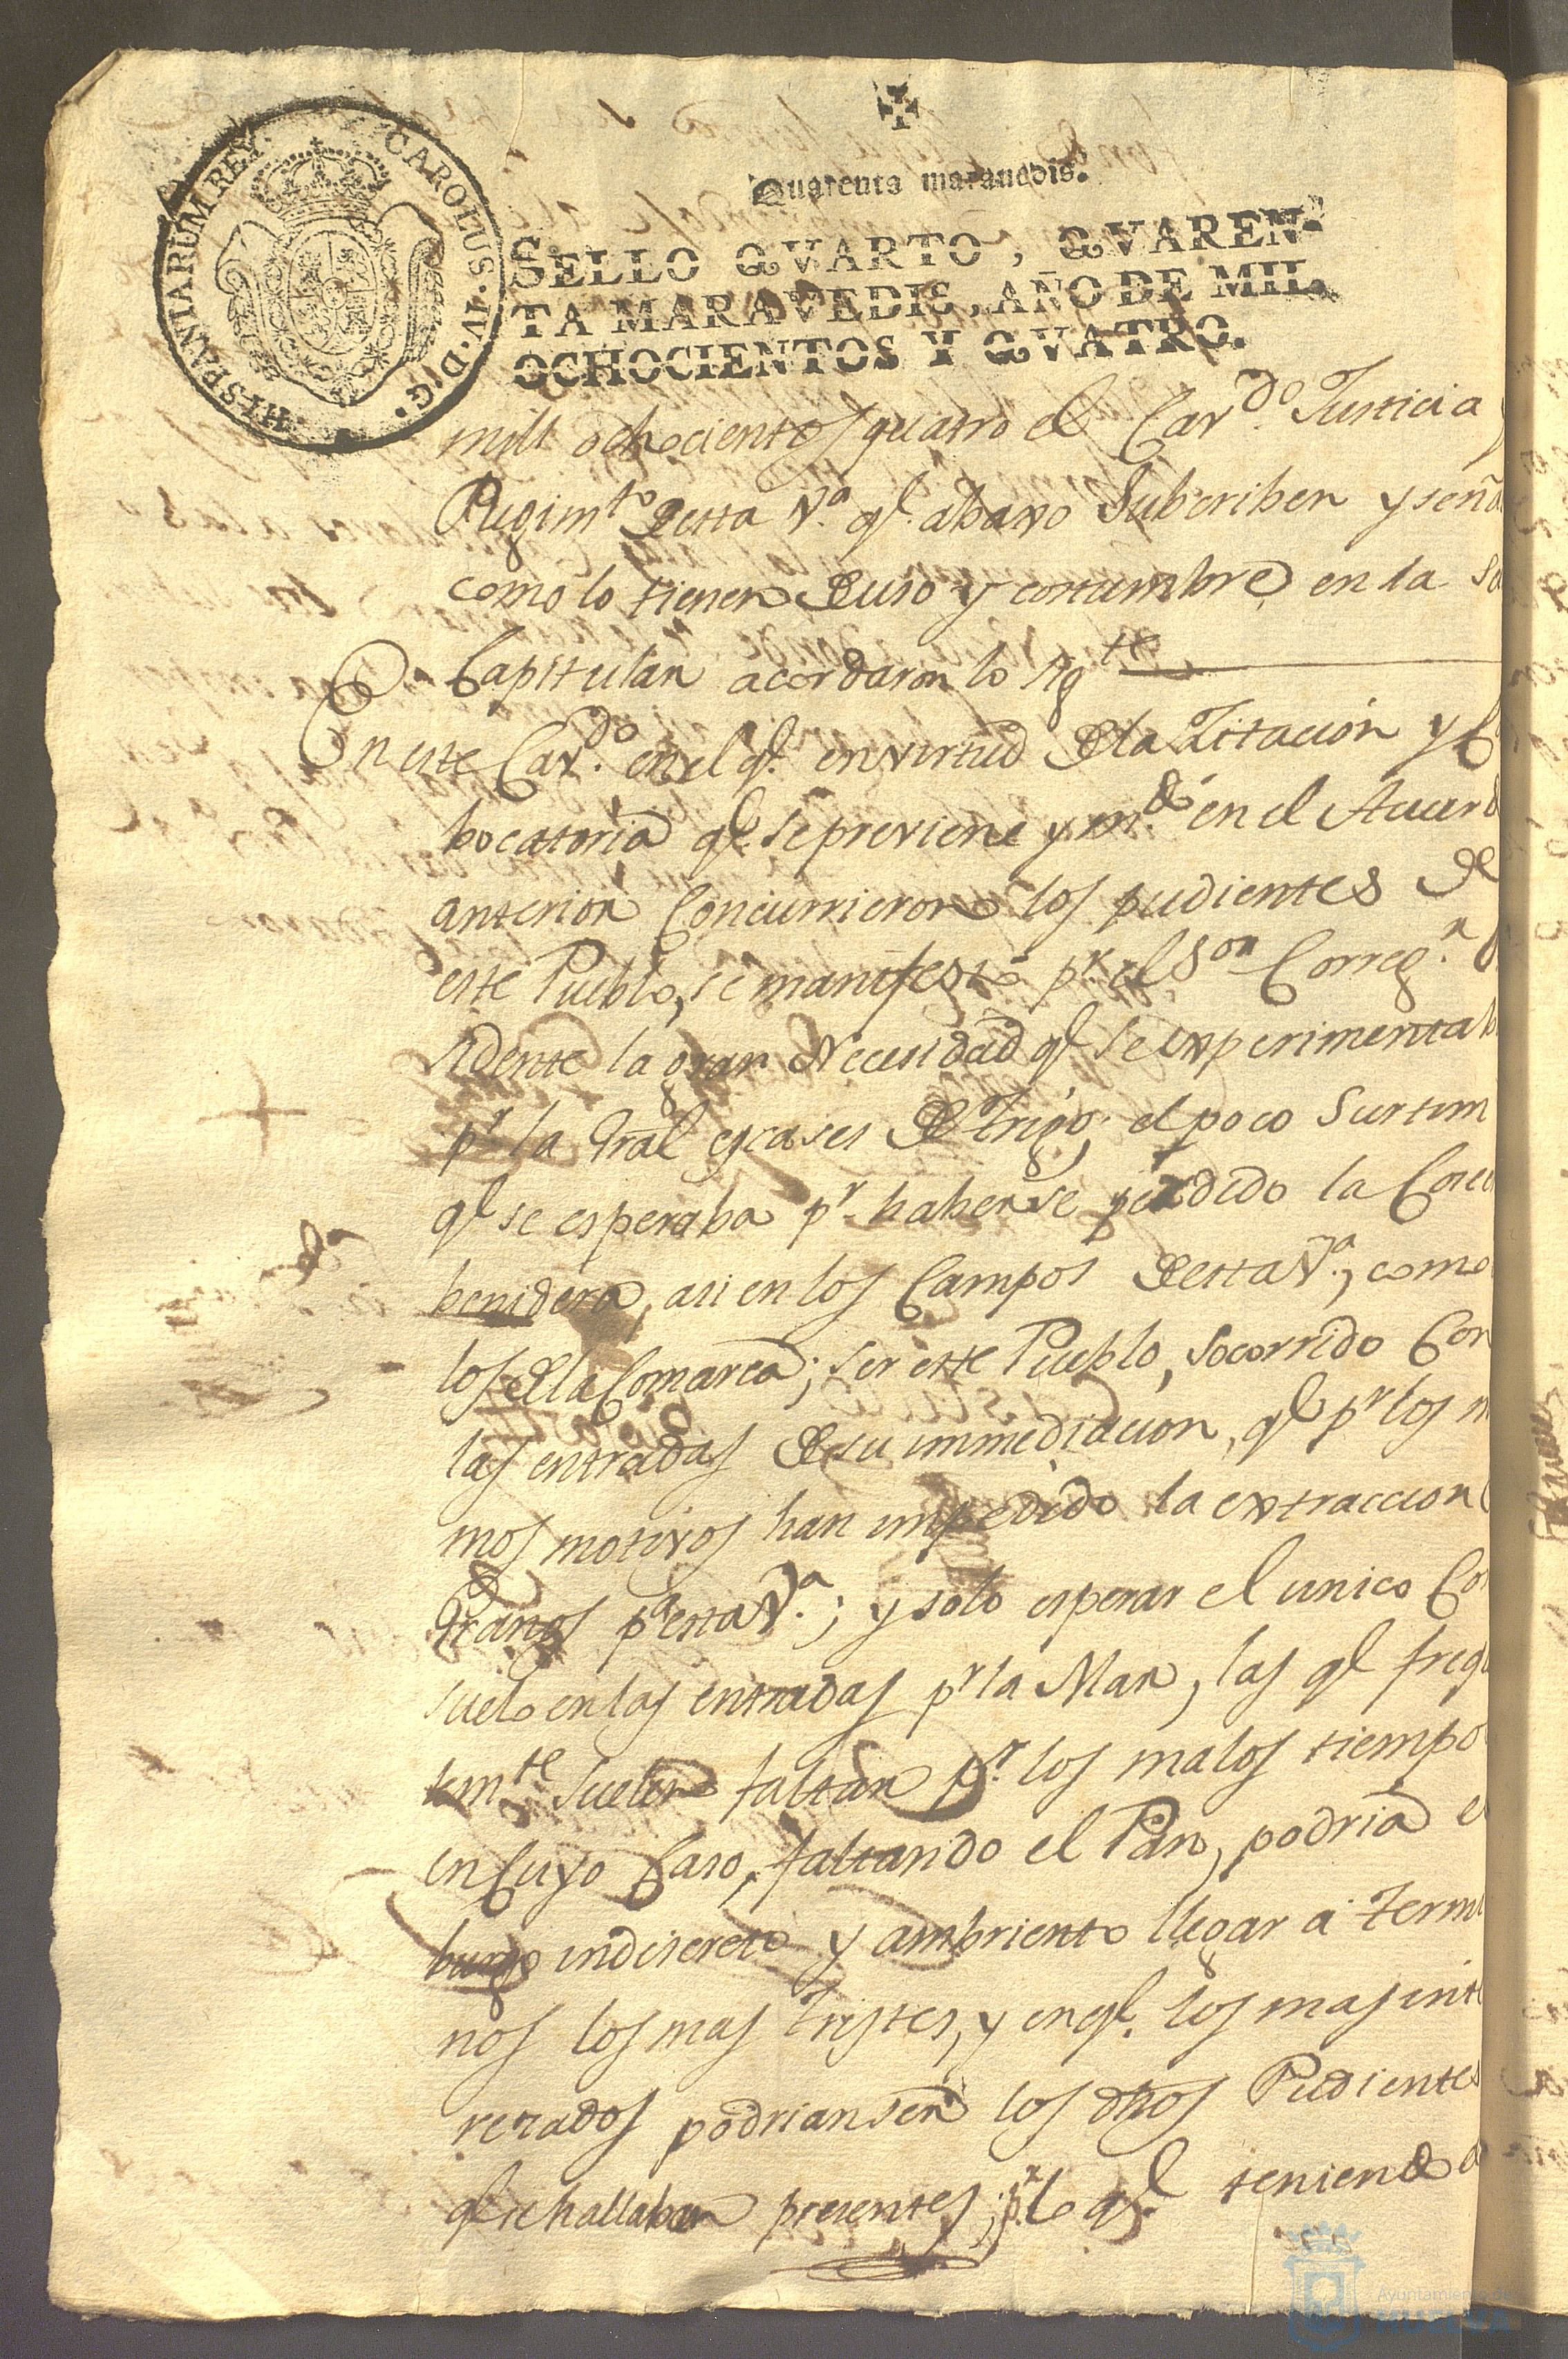 HISPANIARUM REX
CAROLUS·IV·D·G·
Quarenta maravedis.
SELLO QVARTO, QVAREN-
TA MARAVEDIS, AÑO DE MIL
OCHOCIENTOS Y QVATRO.
mill ochocientos quatro el Cavdo. Justicia y
Regimto desta Va. qe. abaxo Subscriben y seña
como lo tienen de uso y costumbre en la Sa
Capitular acordaron lo sigte
En este Cavdo. en el qe. en virtud de la Zitación y C
bocatoria qe. se previene y mdó en el Acuerd
anterior Concurrieron los pudientes de
este Pueblo, se manifestó pr. el Sor. Corregr.
sidente la gran Necesidad qe se experimentab
pr la Gral escases de Trigo; el poco Surtim
qe se esperaba pr. haberse perdido la Cose
benidera, asi en los Campos desta Va., como
los de la Comarca; ser este Pueblo, socorrido Con
las entradas de su immediacion, qe pr los m
mos motivos han impedido la extraccion
Granos pa esta Va.; y solo esperar el unico Con
suelo en las entradas pr la Mar, las qe freq
temte suelen faltar pr. los malos tiempo
en Cuyo Caso, faltando el Pan, podria e
bulgo indiscreto y ambriento llegar á Termi
nos los mas Tristes, y en qe. los mas inte
rezados podrian ser los dhos Pudientes
qe se hallaban presentes; pr lo qe. teniendo
Ayuntamiento de
HUELVA